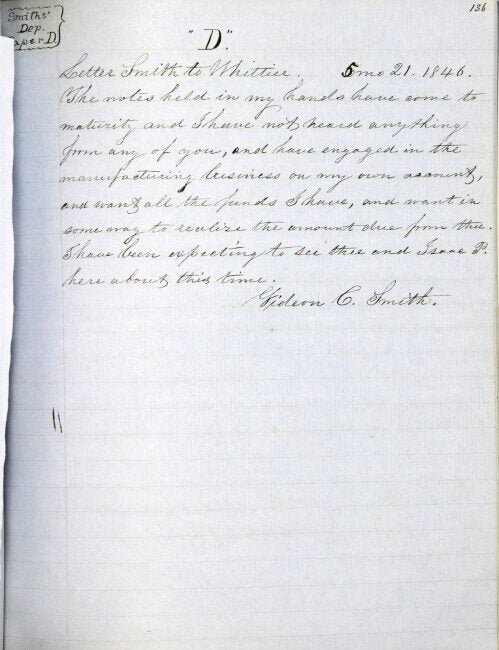 136
Smiths'
Dep.
aper D
"D".
Letter Smith to Whittier. 5 mo 21. 1846.
The notes held in my hands have come to
maturity and I have not heard anything
from any of you, and have engaged in the
manufacturing business on my own account,
and want all the funds I have, and want in
some way to realize the amount due from thee.
I have been expecting to see thee and Isaac P.
here about this time.
Gideon C. Smith.